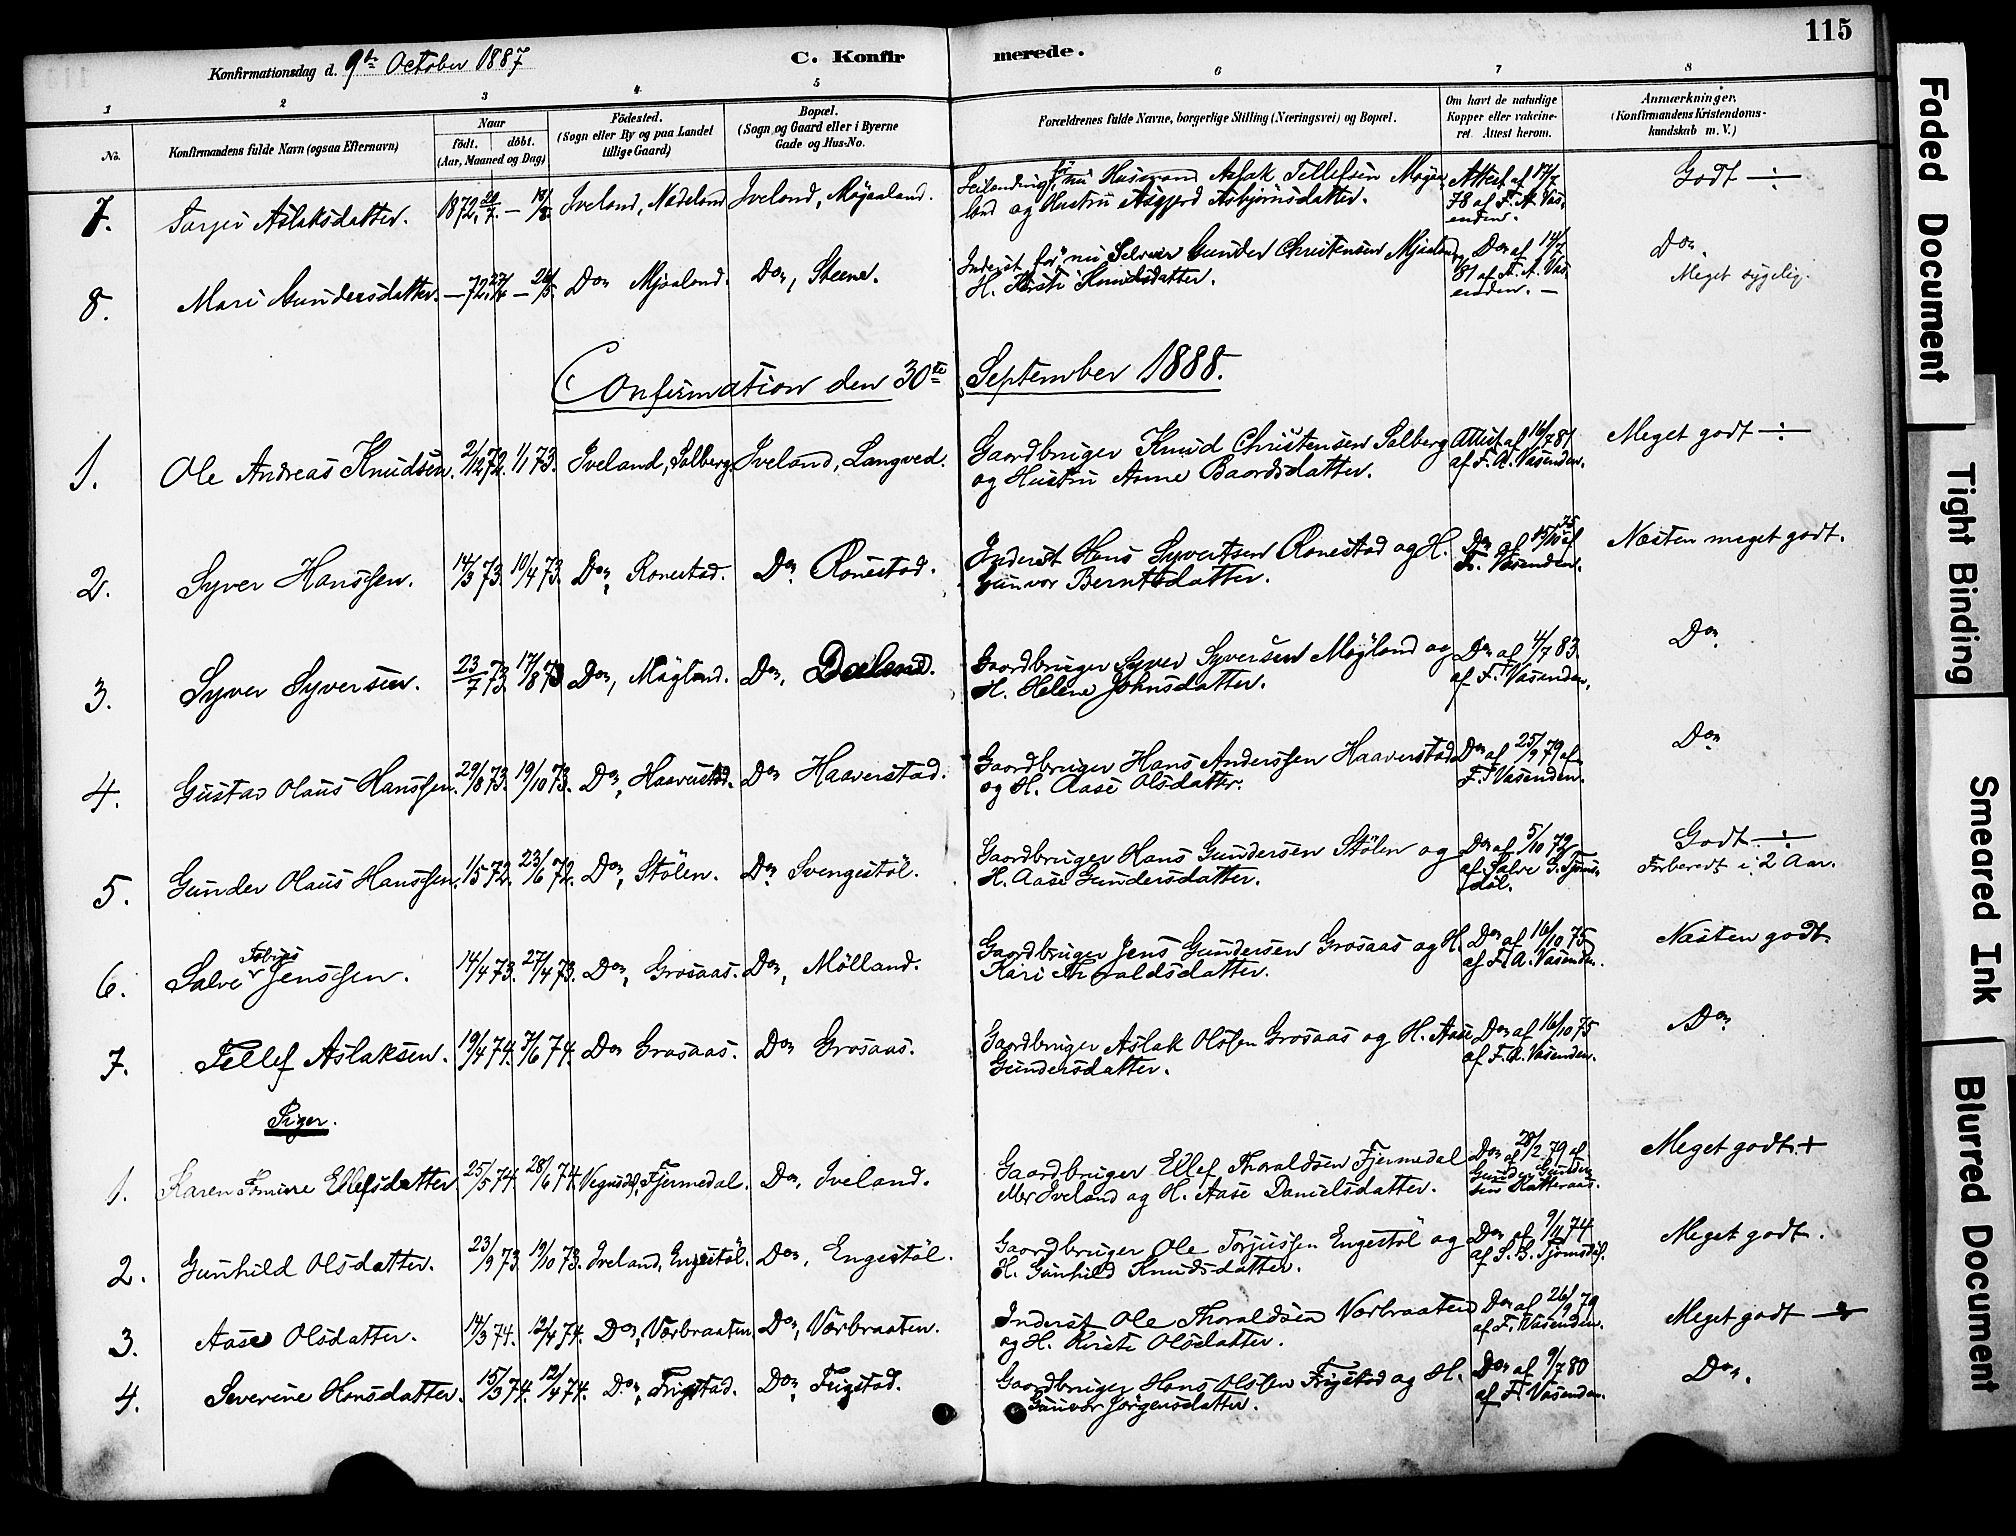 115
Konfirmationsdag d. 9de October 1887
C. Konfir merede.
1 2 3 4 5 6 7 8
No. Konfirmandens fulde Navn (ogsaa Efternavn) Naar født. døbt. (Aar, Maaned og Dag) Fødested. (Sogn eller By og paa Landet tillige Gaard) Bopæl. (Sogn og Gaard eller i Byerne Gade og Hus-No. Forældrenes fulde Navne, borgerlige Stilling (Næringsvei) og Bopæl. Om havt de naturlige Kopper eller vakcineret. Attest herom. Anmærkninger. (Konfirmandens Kristendomskundskab m. V.)
7. Aslaksdatter. 1872 Iveland, Iveland, nu Husmand Aslak Tellefsen
land og Hustru Asgjerd Asbjørnsdatter. Attest af 17/7 78 af F. A. Vasenden. Godt ÷
8. Mari Gundersdatter. — 72 Do Mjaaland. Do, Steene. Inderst før, nu Gunder Christensen Mjaaland,
H. Kirsti Knudsdatter. Do af 14/7 81 af F. A. Vasenden. — Do
Meget sygelig.
Confirmation den 30te September 1888.
1. Ole Andreas Knudsen. 2/12 72. 1/1 73. Iveland, Solberg. Iveland, Langved. Gaardbruger Knud Christensen Solberg
og Hustru Anne Baardsdatter. Attest af 16/7 81 af F. A. Vasenden. Meget godt ÷
2. Syver Hanssen. 14/3 73. 10/4 73. Do, Ronestad. Do. Ronestad. Inderst Hans Syvertsen Ronestad og H.
Gunvor Berntsdatter. Do af 15/10 75 af F. Vasenden. Næsten meget godt.
3. Syver Syversen. 23/7 73 17/8 73 Do, Møgland. Do, Gaardbruger Syver Syversen Møgland og
H. Helene Johnsdatter. Do af 4/7 83 af F. Vasenden. Do
4. Gustav Olaus Hanssen. 29/8 73. 19/10 73. Do, Haaverstad. Do Haaverstad. Gaardbruger Hans Anderssen Haaverstad
og H. Aase Olsdatter. Do af 25/9 79 af F. Vasenden. Do
5. Gunder Olaus Hanssen. 1/5 72. 23/6 72. Do, Stølen. Do. Svengestøl. Gaardbruger Hans Gundersen Stølen og
H. Aase Gundersdatter. Do af 5/10 72 af Salve G. Godt ÷
Forberedt i 2 Aar.
6. Salve Tobias Jenssen. 14/4 73. 27/4 73. Do, Grosaas. Do, Mølland. Gaardbruger Jens Gundersen Grosaas og H.
Kari Thoraldsdatter. Do af 16/10 75 af F. A. Vasenden. Næsten godt.
7. Tellef Aslaksen. 19/4 74. 7/6 74. Do Grosaas. Do Grosaas. Gaardbruger Aslak Olssen Grosaas og H. Aase
Gundersdatter. Do af 16/10 75 af F. A. Vasenden. Do
Piger.
1. Karen Ellefsdatter 25/5 74. 28/6 74. Fjermedal. Do, Iveland. Gaardbruger Ellef Thoraldsen Fjermedal
Iveland og H. Aase Danielsdatter. Do af 28/2 79 af Gunder Gundersen Hatteraas. Meget godt +
2. Gunhild Olsdatter. 23/9 73 19/10 73. Iveland, Engestøl. Do, Engestøl. Gaardbruger Ole Torjussen Engestøl og
H. Gunhild Knudsdatter. Do af 9/11 74 af Meget godt.
3. Aase Olsdatter. 14/3 74. 12/4 74. Do, Vørbraaten Do, Vørbraaten. Inderst Ole Thoraldsen Vørbraaten
og H. Kirsti Olsdatter. Do af 26/9 79 af F. Vasenden. Meget godt
4. Severine Hansdatter. 15/3 74. 12/4 74. Do, Frigstad. Do, Frigstad. Gaardbruger Hans Olssen Frigstad og H.
Gunvor Jørgensdatter. Do af 9/7 80 af F. Vasenden. Do.
Faded Document
Tight Binding
Smeared Ink
Blurred Document